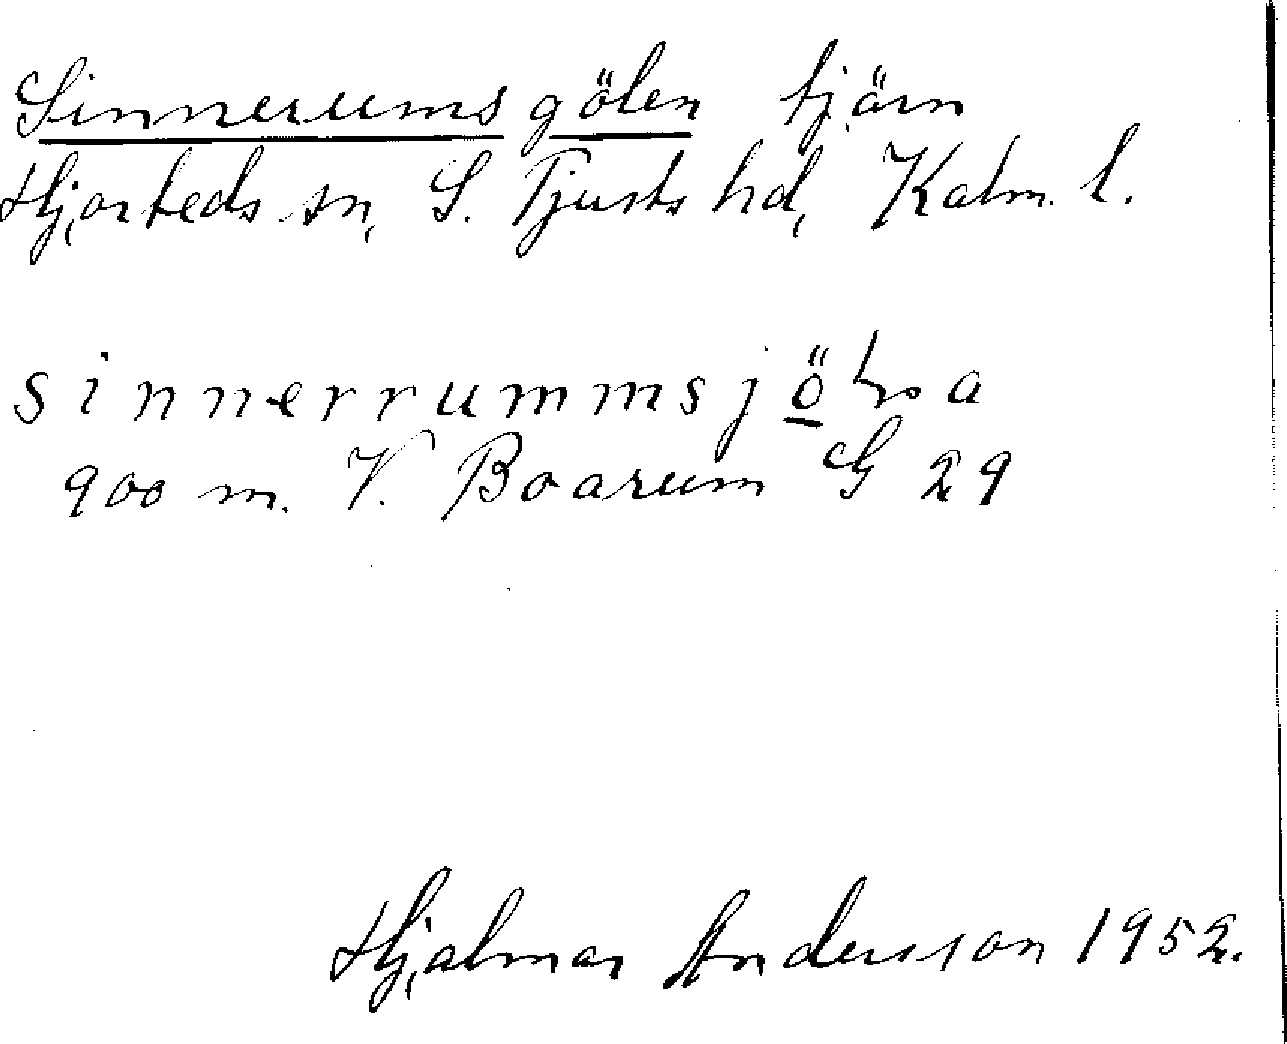 Sinnerumsgölen tjärn
Hjorteds sn, S. Tjusts hd, Kalm. l.
sinnerrummsjö̲lna
900 m. V. Boarum G 29
Hjalmar Andersson 1952.